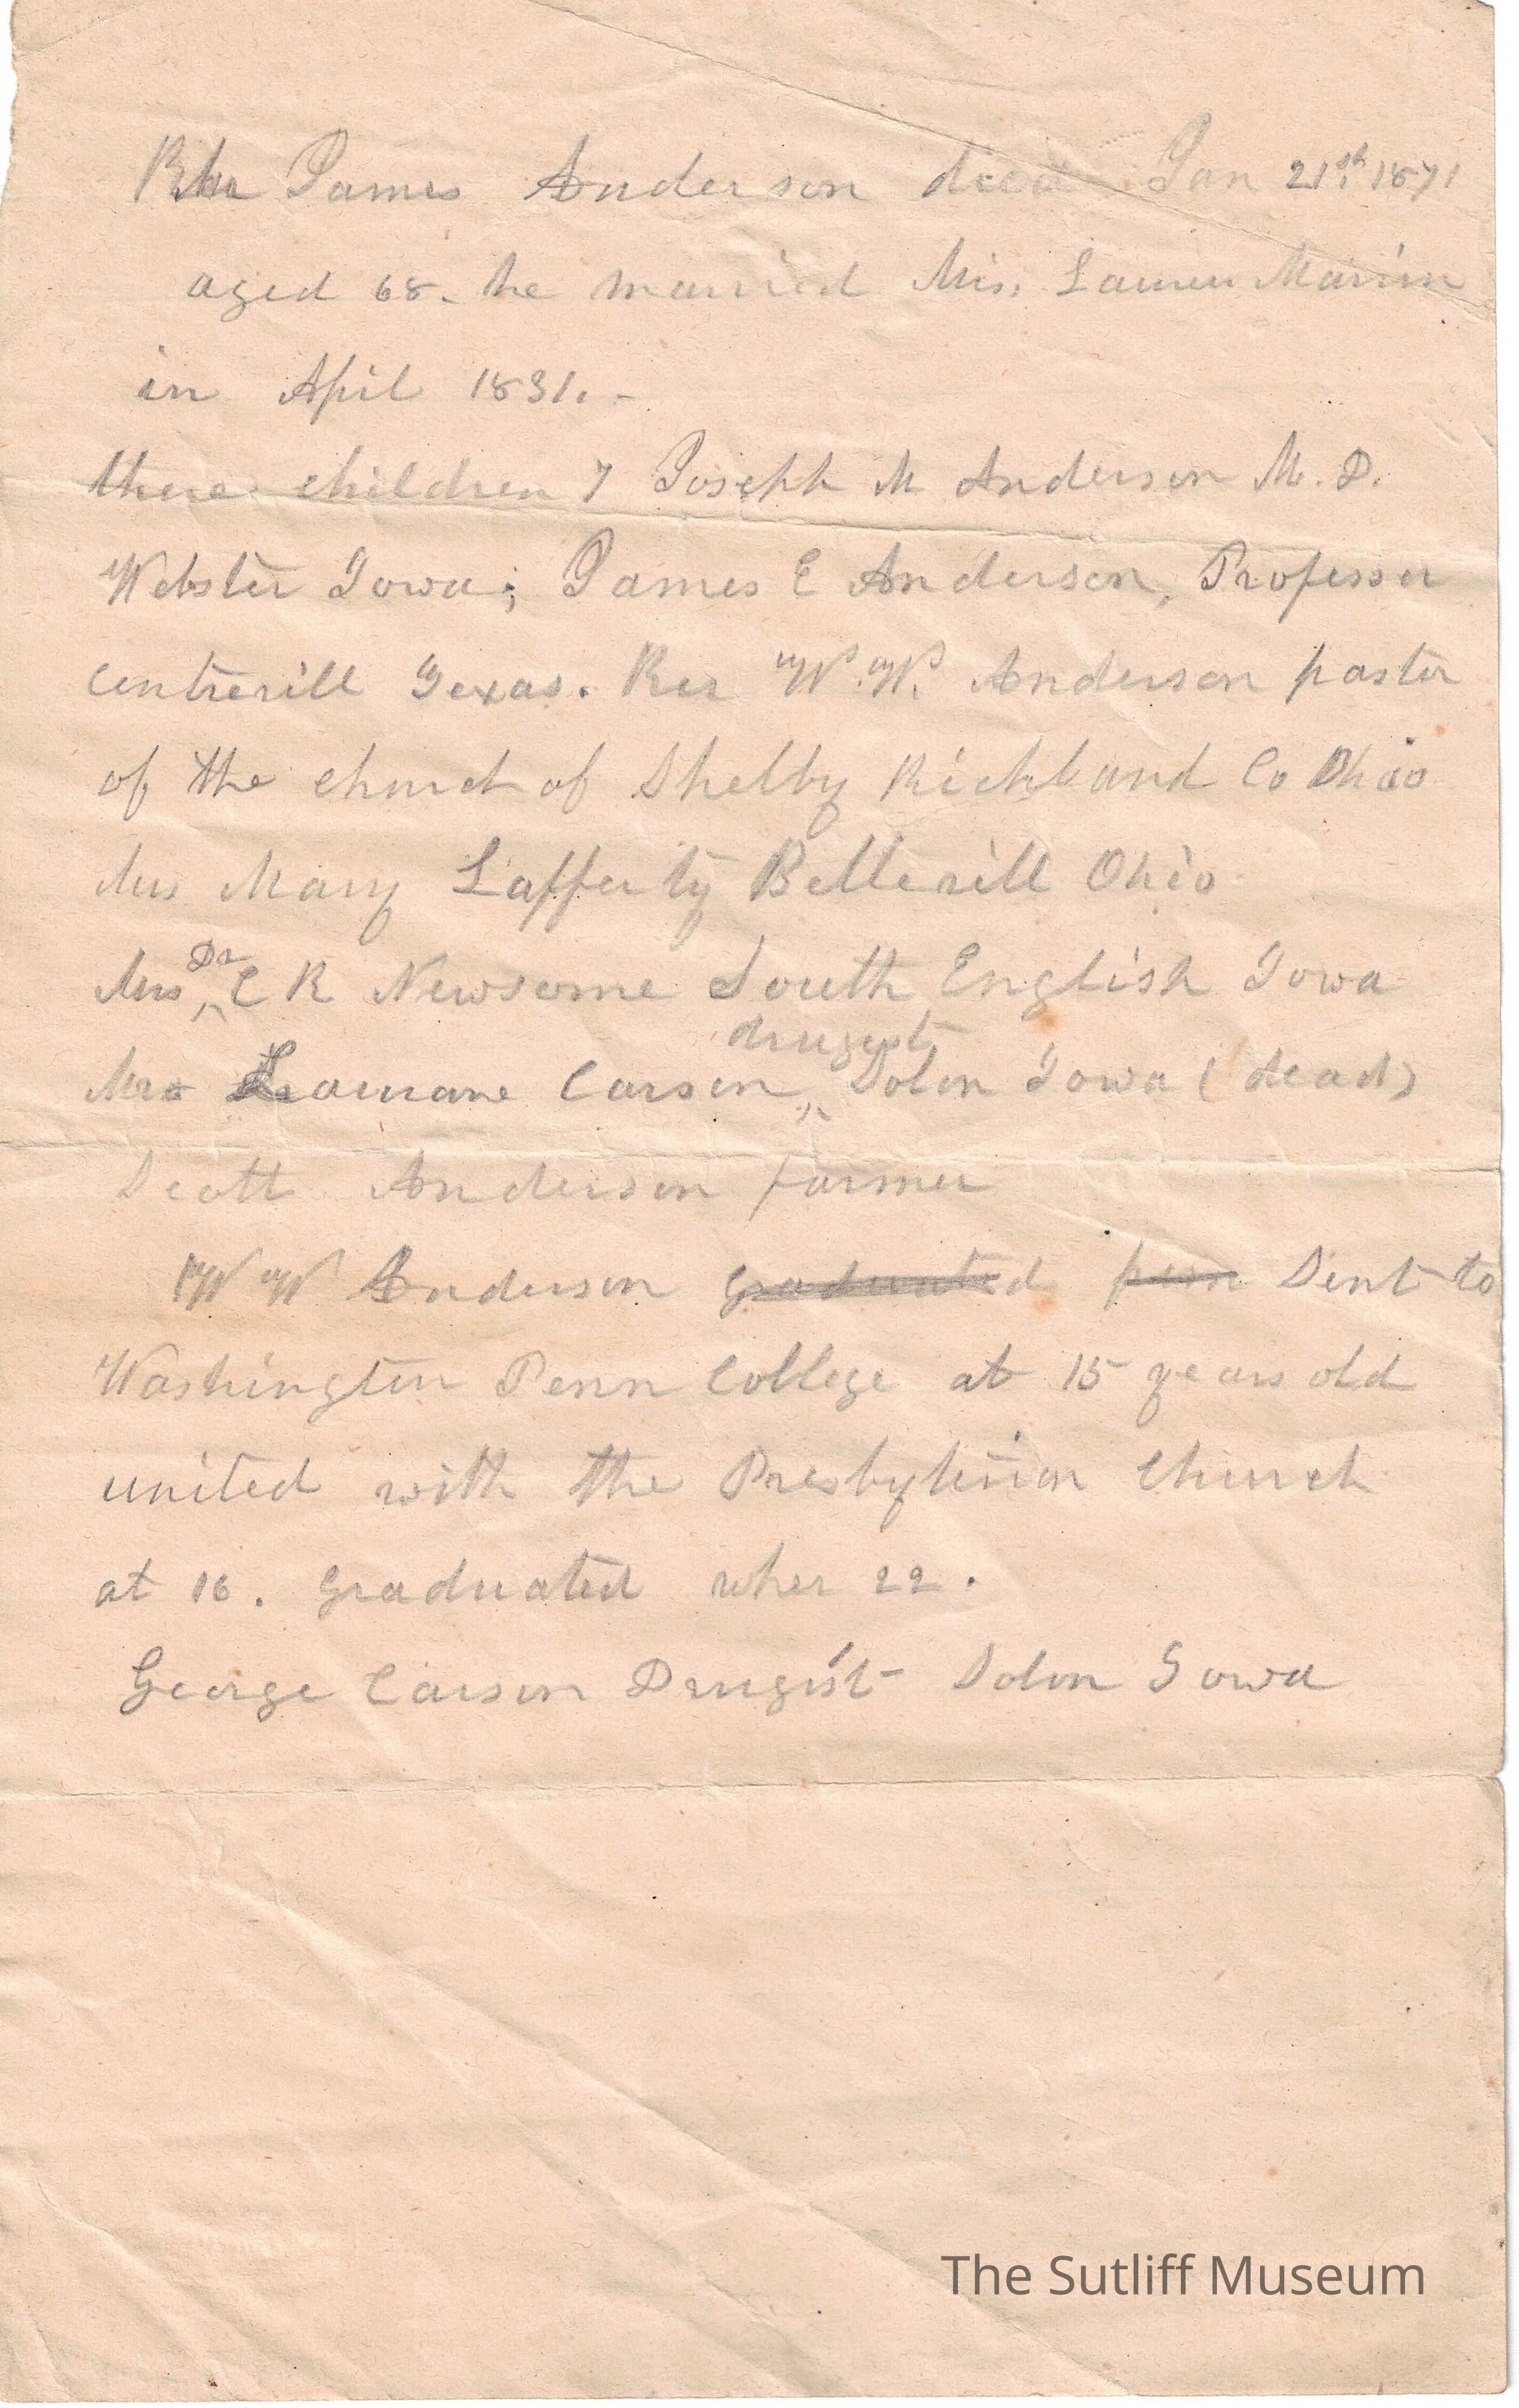 James Anderson died Jan 21st 1871
aged 68. he married Mis.
in April 1831. -
there children 7 Joseph M Anderson M. D.
Webster Iowa; James E Anderson, Professer
Centrevill Texas. Rev W. W. Anderson pastor
of the Church of Shelby Richland Co Ohio
Mrs Mary Lafferty Bellevill Ohio
Mrs ^Dr C R Newsome South English Iowa
drugest
Mrs Carson ^ Solon Iowa (dead)
Scott Anderson farmer
W W Anderson graduated penn Sent to
Washington Penn College at 15 years old
united with the Presbyterian Church
at 16. Graduated when 22.
George Carson Drugist Solon Iowa
The Sutliff Museum